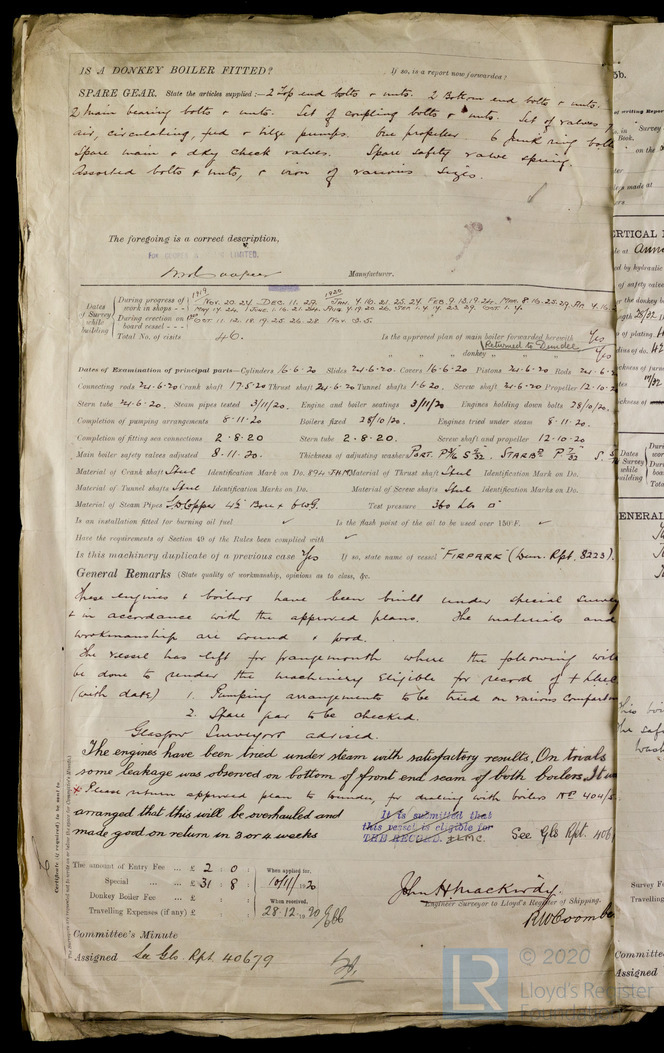 IS A DONKEY BOILER FITTED? If so, is a report now forwarded?
SPARE GEAR. State the articles supplied:— 2 Top end bolts & nuts. 2 Bottom end bolts & nuts.
2 Main bearing bolts & nuts. Set of coupling bolts & nuts. Set of valves
air, circulating, feed & bilge pumps. One propeller 6 junk ring bolts
Spare main & dky check valves. Spare safety valve spring.
Assorted bolts & nuts, & iron of various sizes.
The foregoing is a correct description,
Manufacturer.
Dates of Survey while building
During progress of work in shops - - 1919 Nov. 20. 24. Dec. 11. 29. 1920 Jan. 4. 16. 21. 25. 24. Feb. 9. 13. 19. 24. Mar. 8. 16. 25. 29.
During erection on board vessel - - - Oct 11. 12. 18. 19. 25. 26. 28. Nov. 3. 5.
Total No. of visits 46. Is the approved plan of main boiler forwarded herewith Yes
Returned to Dundee
" " " donkey " " " Yes
Dates of Examination of principal parts—Cylinders 16.6.20 Slides 24.6.20 Covers 16.6.20 Pistons 24.6.20 Rods 24.6.20
Connecting rods 24.6.20 Crank shaft 17.5.20 Thrust shaft 24.6.20 Tunnel shafts 1.6.20. Screw shaft 24.6.20 Propeller 12.10.20
Stern tube 24.6.20. Steam pipes tested 3/11/20. Engine and boiler seatings 3/11/20 Engines holding down bolts 28/10/20.
Completion of pumping arrangements 8.11.20 Boilers fixed 28/10/20. Engines tried under steam 8.11.20.
Completion of fitting sea connections 2.8.20 Stern tube 2.8.20. Screw shaft and propeller 12.10.20
Main boiler safety valves adjusted 8.11.20. Thickness of adjusting washers
Material of Crank shaft Steel Identification Mark on Do. 894 FHM Material of Thrust shaft Steel Identification Mark on Do.
Material of Tunnel shafts Steel Identification Marks on Do. Material of Screw shafts Steel Identification Marks on Do.
Material of Steam Pipes S.D. Copper 4½" Bore x 6 WG. Test pressure 360 Lbs □"
Is an installation fitted for burning oil fuel ✓ Is the flash point of the oil to be used over 150°F. ✓
Have the requirements of Section 49 of the Rules been complied with ✓
Is this machinery duplicate of a previous case Yes If so, state name of vessel "FIRPARK" (Dun. Rpt. 8223).
General Remarks (State quality of workmanship, opinions as to class, &c.
These engines & boilers have been built under special survey
& in accordance with the approved plans. The materials and
workmanship are sound & good.
The vessel has left for Grangemouth where the following will
be done to render the machinery eligible for record of + LMC
(with date) 1. Pumping arrangements to be tried on various compartm
2. Spare gear to be checked.
Glasgow Surveyors advised.
The engines have been tried under steam with satisfactory results. On trials
some leakage was observed on bottom of front end seam of both boilers.
* Please return approved plan to Dundee, for dealing with boilers No 404/5
arranged that this will be overhauled and
made good on return in 3 or 4 weeks
It is submitted that
this vessel is eligible for
THE RECORD. + LMC.
See Gls Rpt. 406
The amount of Entry Fee ... £ 2 : 0 : When applied for,
Special ... ... £ 31 : 8 : 10/11/1920
Donkey Boiler Fee ... £ : : When received.
Travelling Expenses (if any) £ : : 28.12.1920
John H Mackirdy.
Engineer Surveyor to Lloyd's Register of Shipping.
R W Coomber
Committee's Minute
Assigned See Gls. Rpt. 40679
© 2020
Lloyd's Register
Foundation
LR